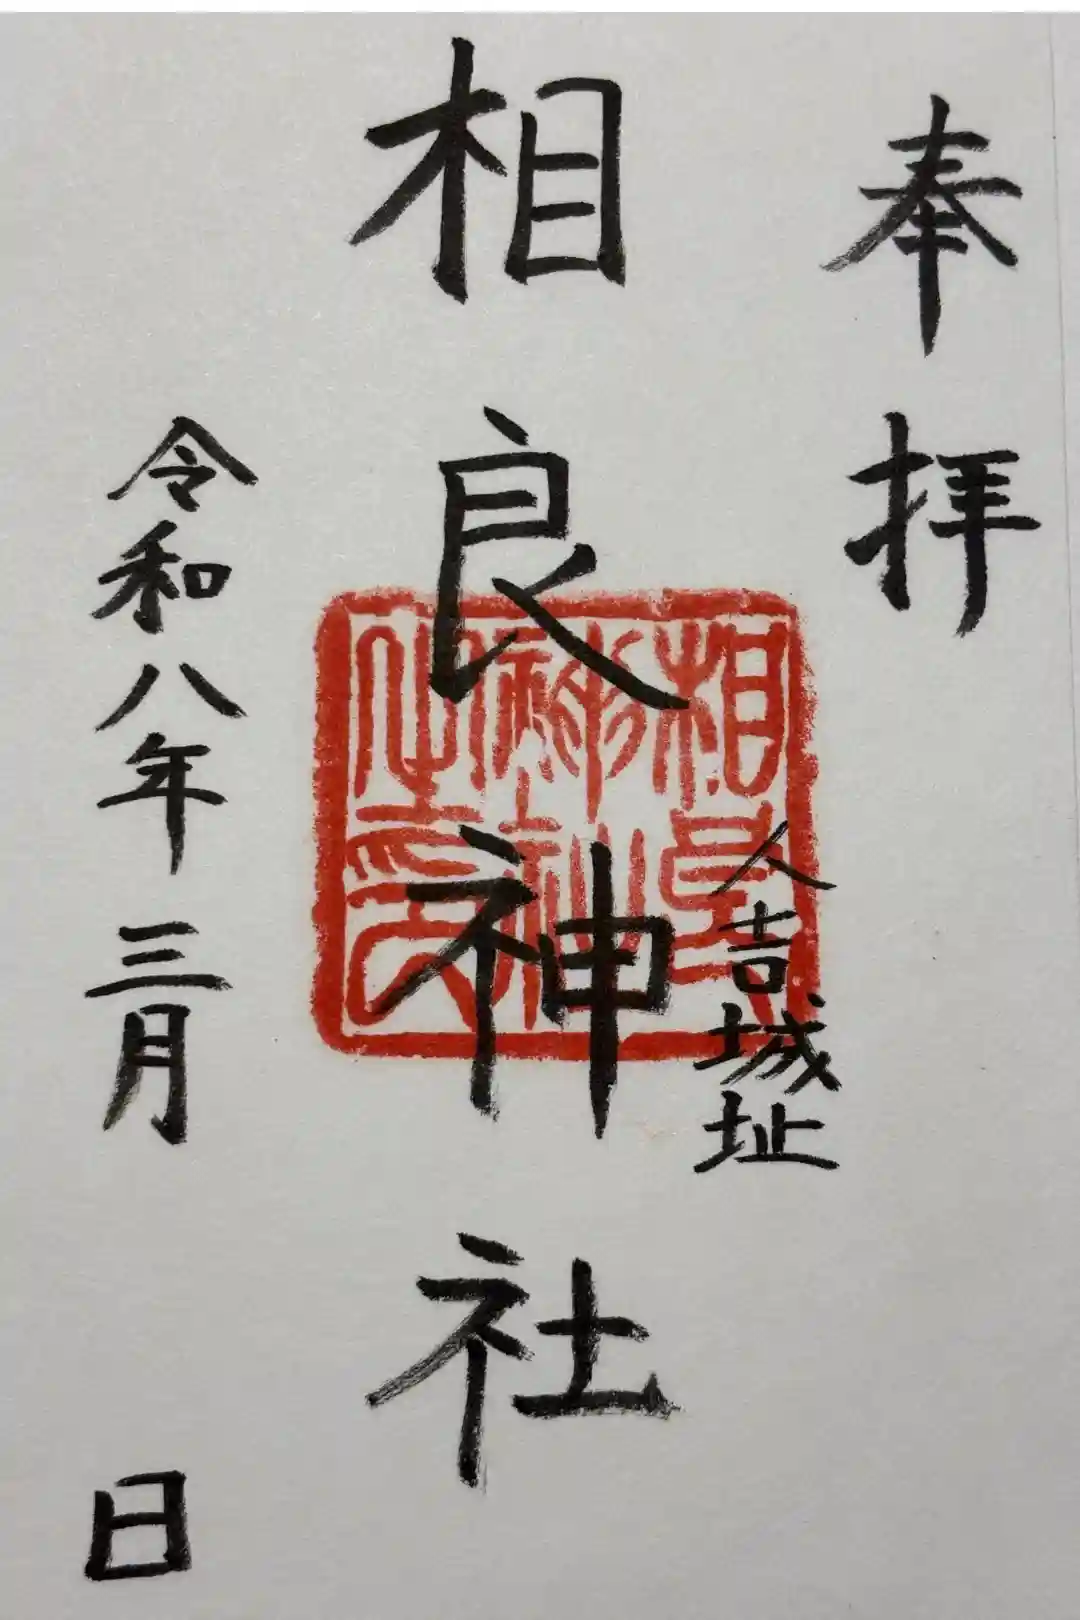 奉拝
人吉城址
相良神社
相良
神社
之印
令和八年三月 日